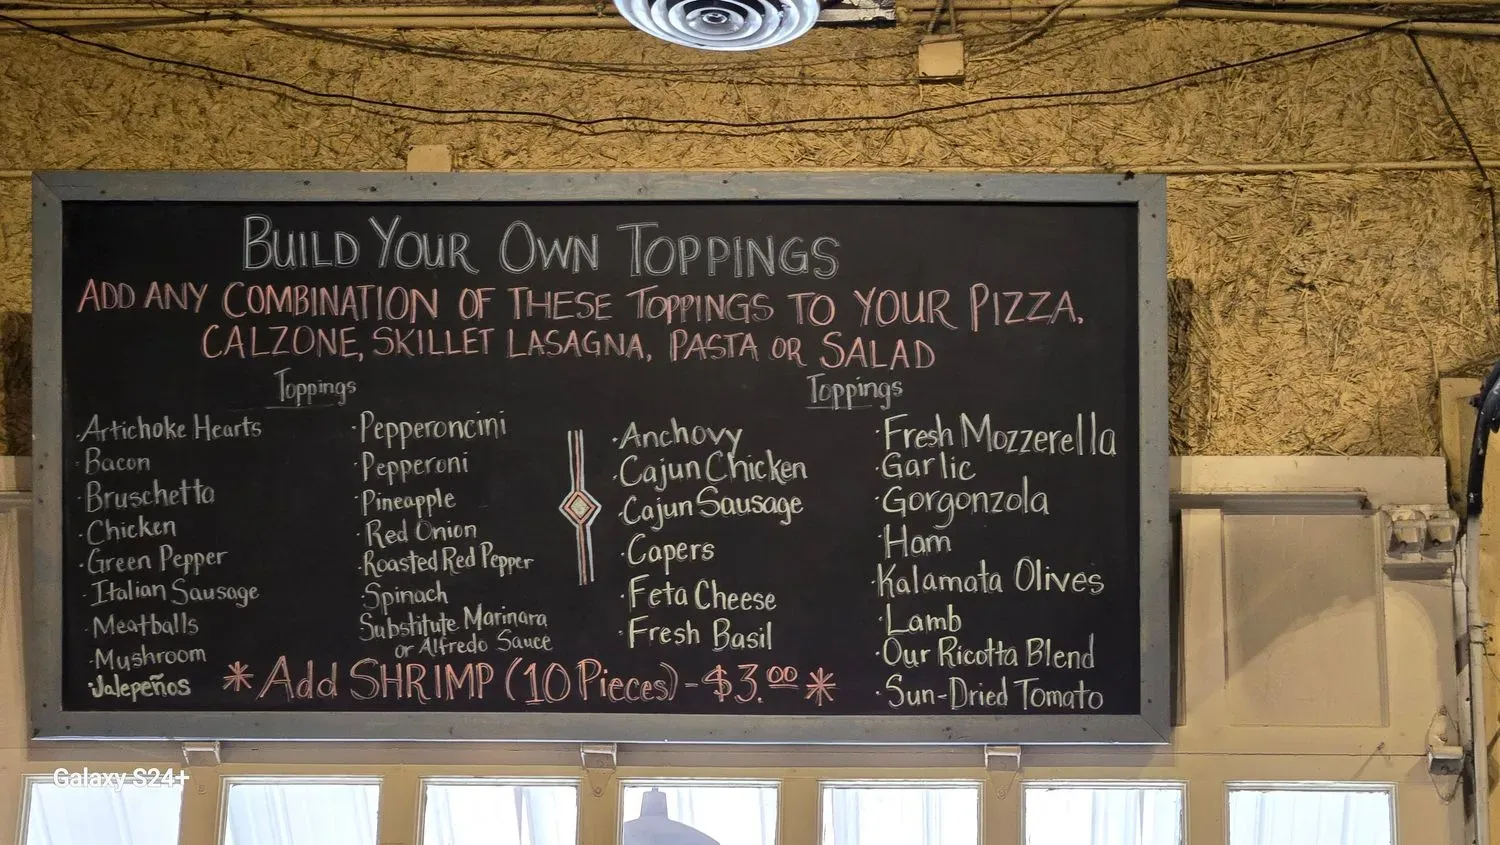 BUILD YOUR OWN TOPPINGS
ADD ANY COMBINATION OF THESE TOPPINGS TO YOUR PIZZA,
CALZONE, SKILLET LASAGNA, PASTA OR SALAD
Toppings
· Artichoke Hearts
· Bacon
· Bruschetta
· Chicken
· Green Pepper
· Italian Sausage
· Meatballs
· Mushroom
· Jalepeños
· Pepperoncini
· Pepperoni
· Pineapple
· Red Onion
· Roasted Red Pepper
· Spinach
Substitute Marinara
or Alfredo Sauce
Toppings
· Anchovy
· Cajun Chicken
· Cajun Sausage
· Capers
· Feta Cheese
· Fresh Basil
· Fresh Mozzerella
· Garlic
· Gorgonzola
· Ham
· Kalamata Olives
· Lamb
· Our Ricotta Blend
· Sun-Dried Tomato
* Add SHRIMP (10 Pieces) - $3.00 *
Galaxy S24+